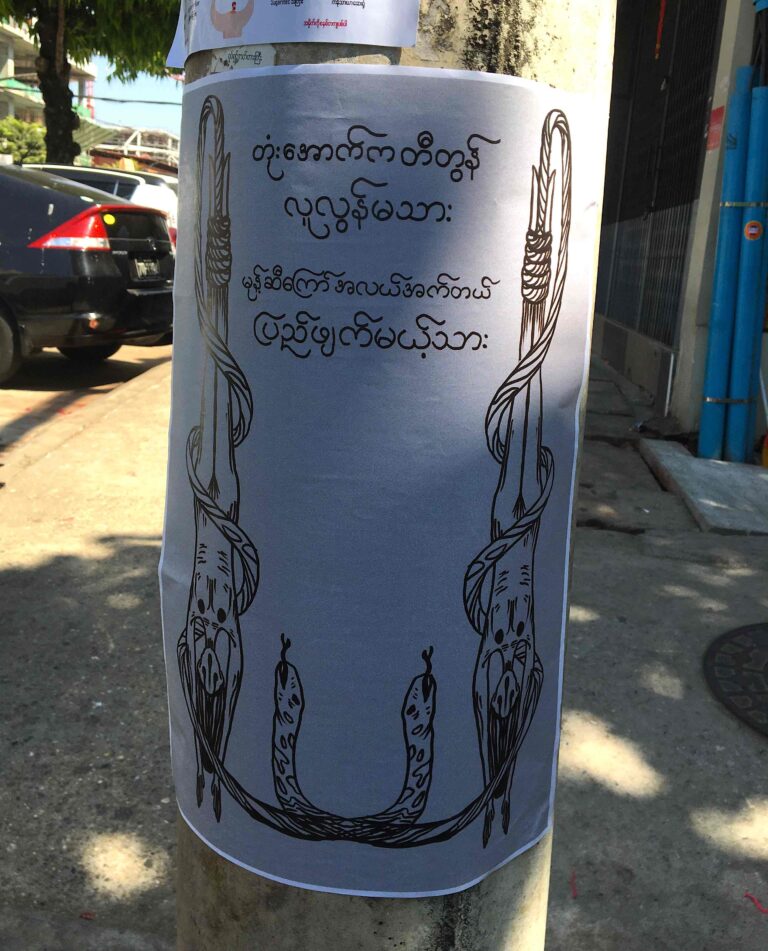 တုံးအောက်က တီတွန်
လူလွန်မသား
မုန့်ဆီကြော် အလယ်အက်တယ်
ပြည်ဖျက်မယ့်သား